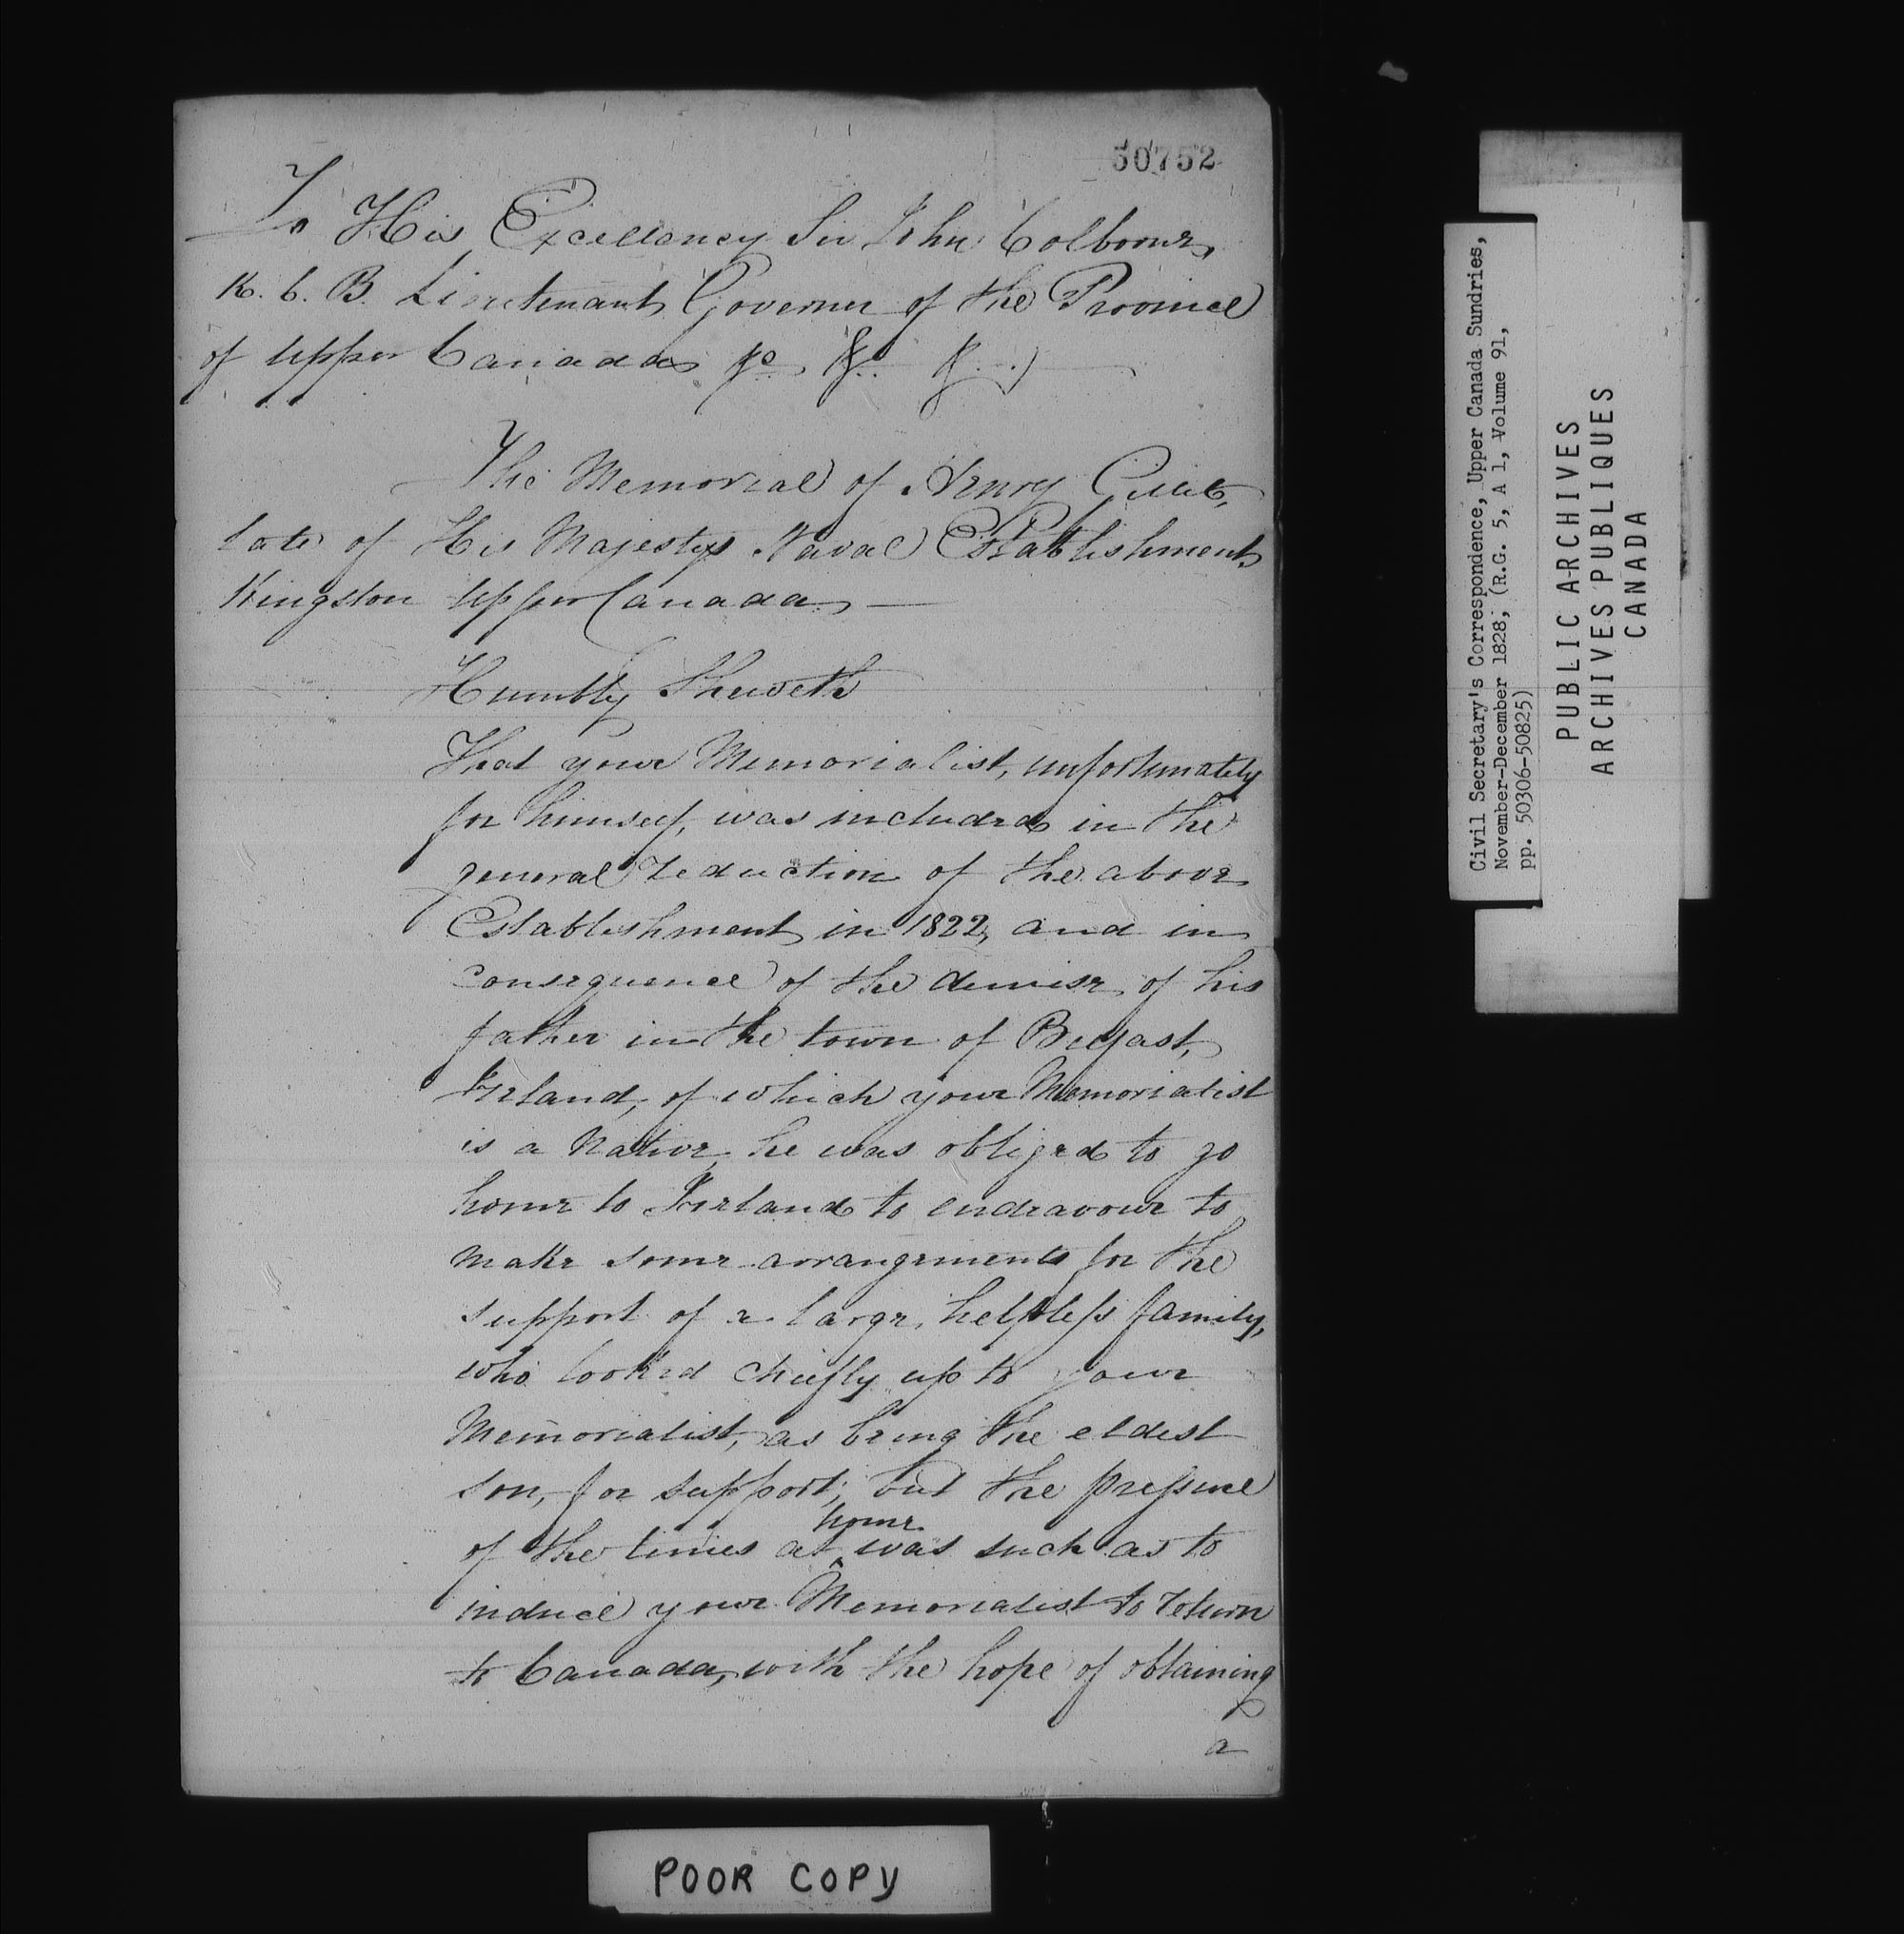 50752
To His Excellency Sir John Colborne,
K. C. B. Lieutenant Governer of the Province
of Upper Canada &c &c &c
The Memorial of Henry
late of His Majestys Naval Establishment
Kingston Upper Canada
Humbly Sheweth
That your Memorialist, unfortunately
for himself, was included in the
general reduction of the above
Establishment in 1822, and in
consequence of the demise of his
father in the town of Belfast,
Ireland, of which your Memorialist
is a native, he was obliged to go
home to Ireland to endeavour to
make some arrangements for the
support of a large, helpless family,
who looked chiefly up to your
Memorialist, as being the eldest
son, for support; but the pressure
of the times at home was such as to
induce your Memorialist to return
to Canada, with the hope of obtaining
a
POOR COPY
Civil Secretary's Correspondence, Upper Canada Sundries,
November-December 1828, (R.G. 5, A 1, Volume 91,
pp. 50306-50825)
PUBLIC ARCHIVES
ARCHIVES PUBLIQUES
CANADA